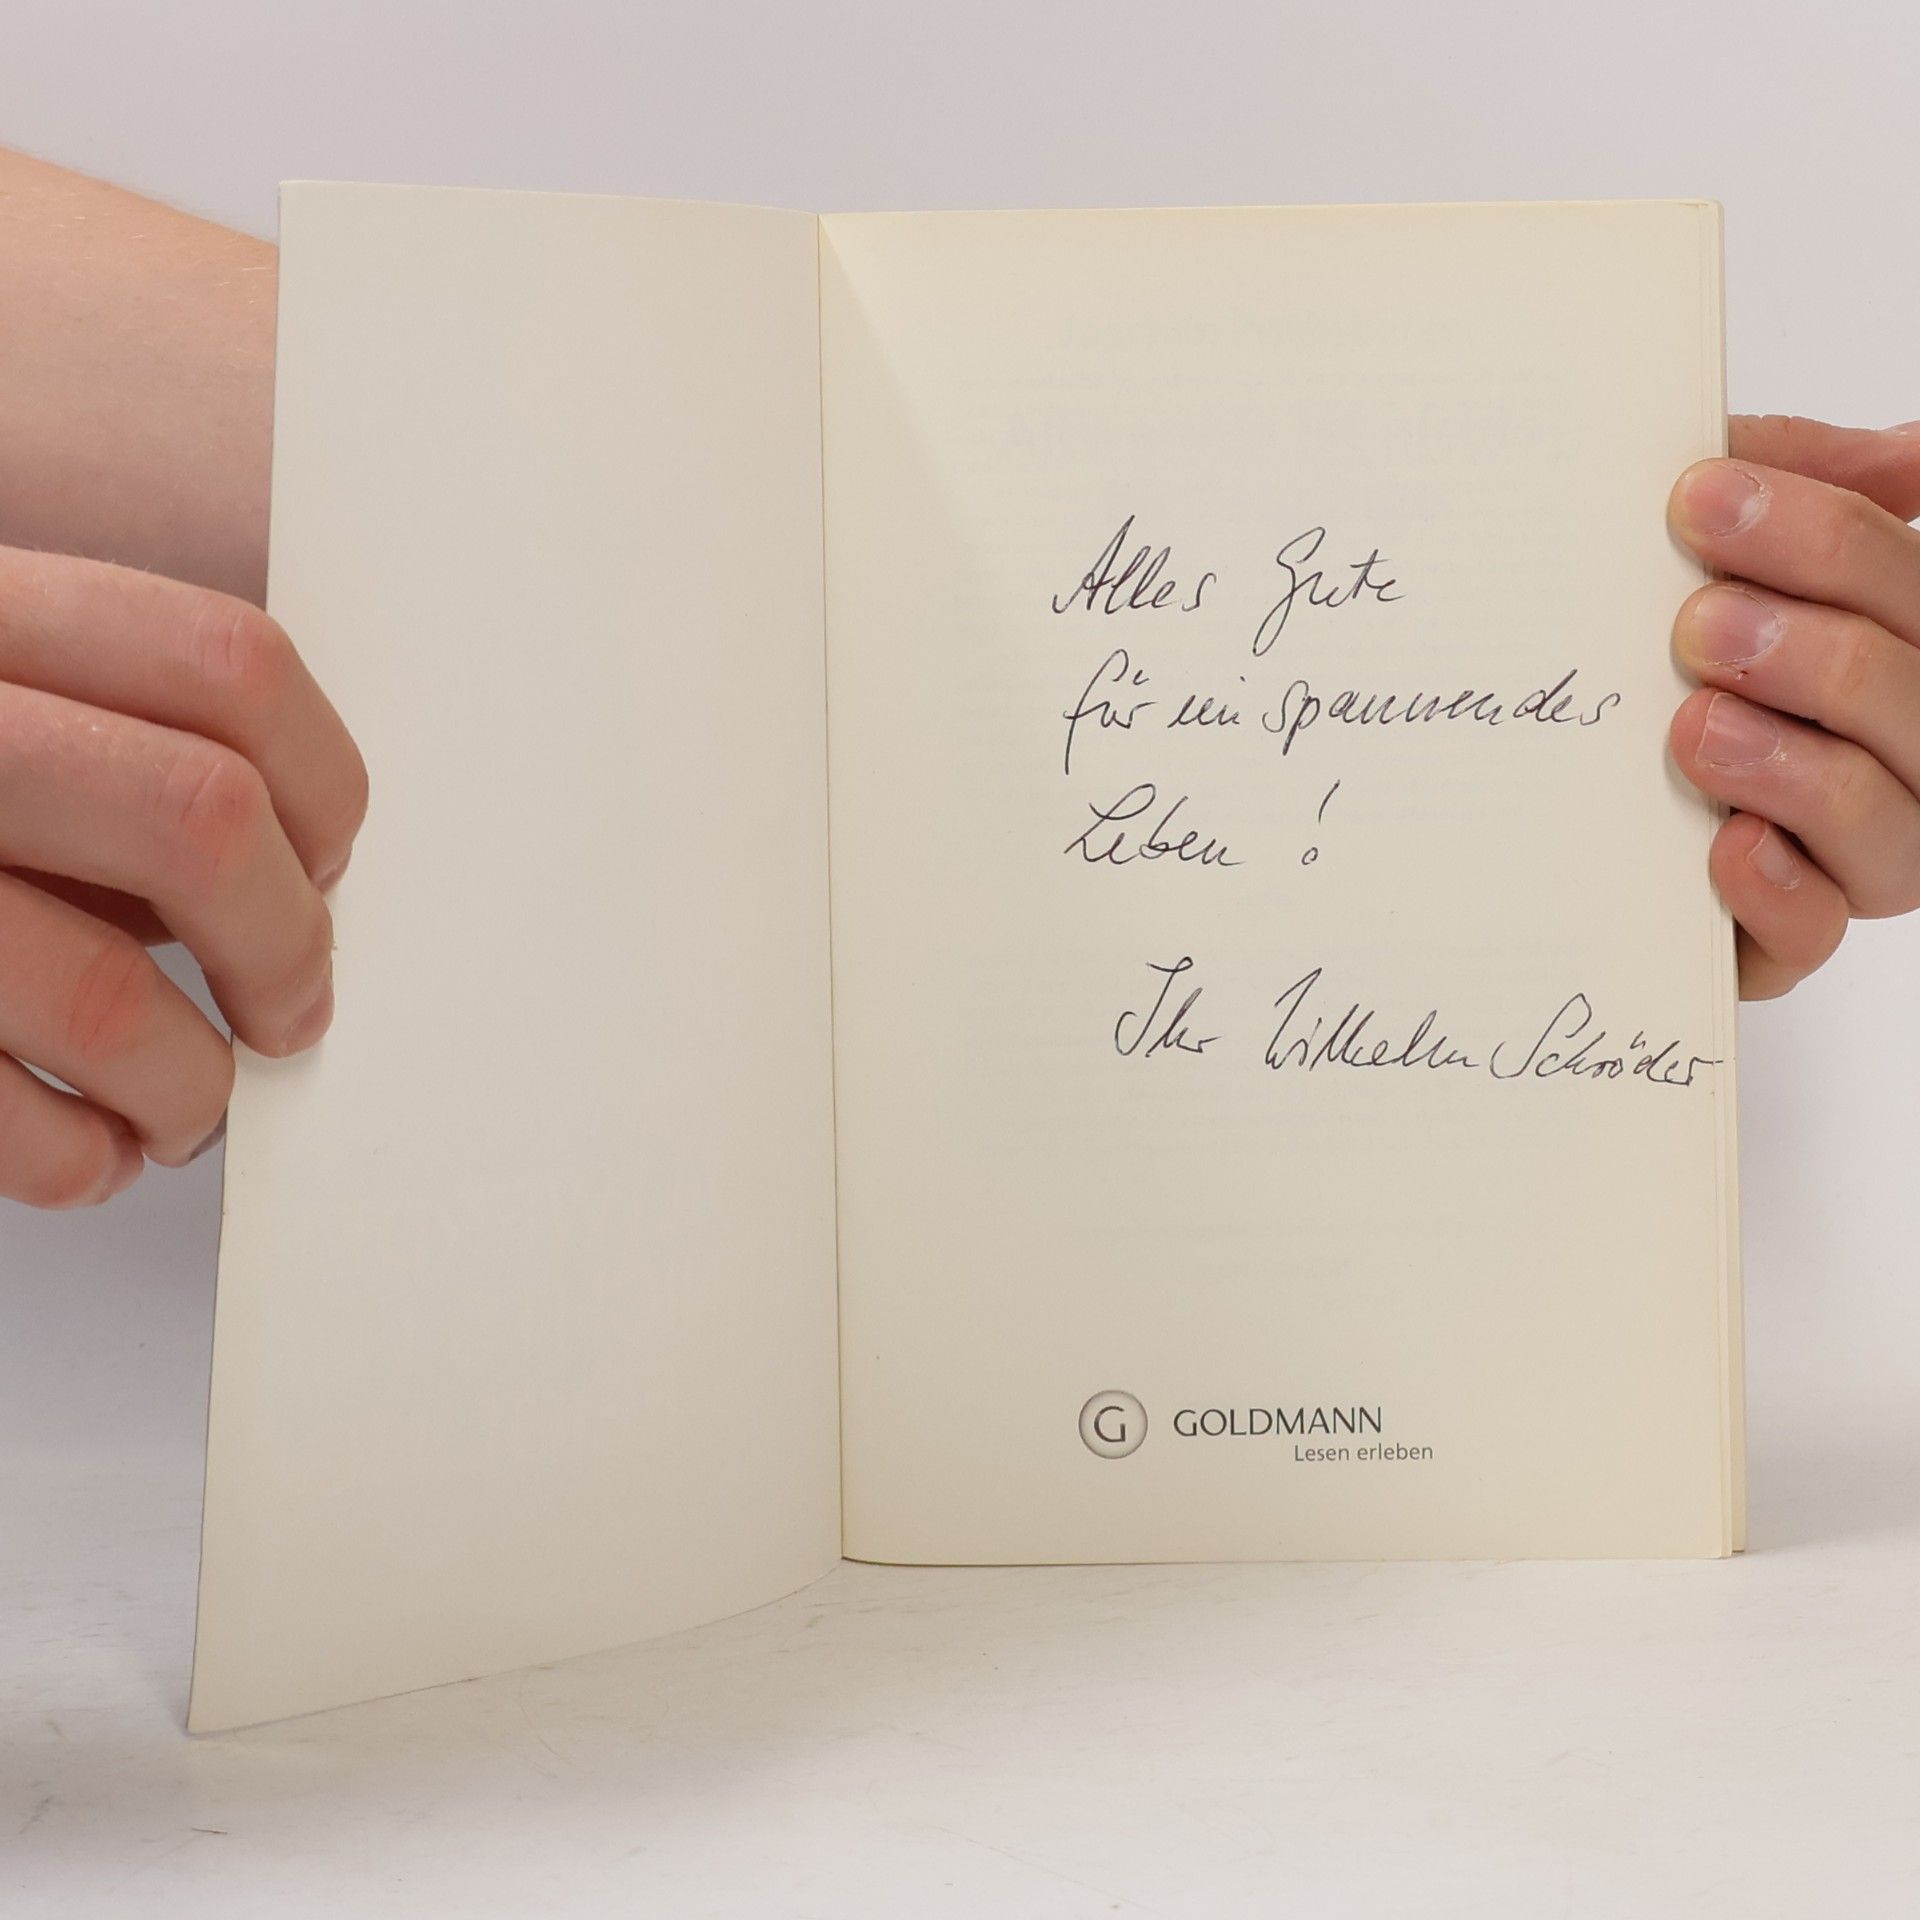 Alles Gute
für ein spannendes
Leben !
Ihr Wilhelm Schröder
G GOLDMANN
Lesen erleben